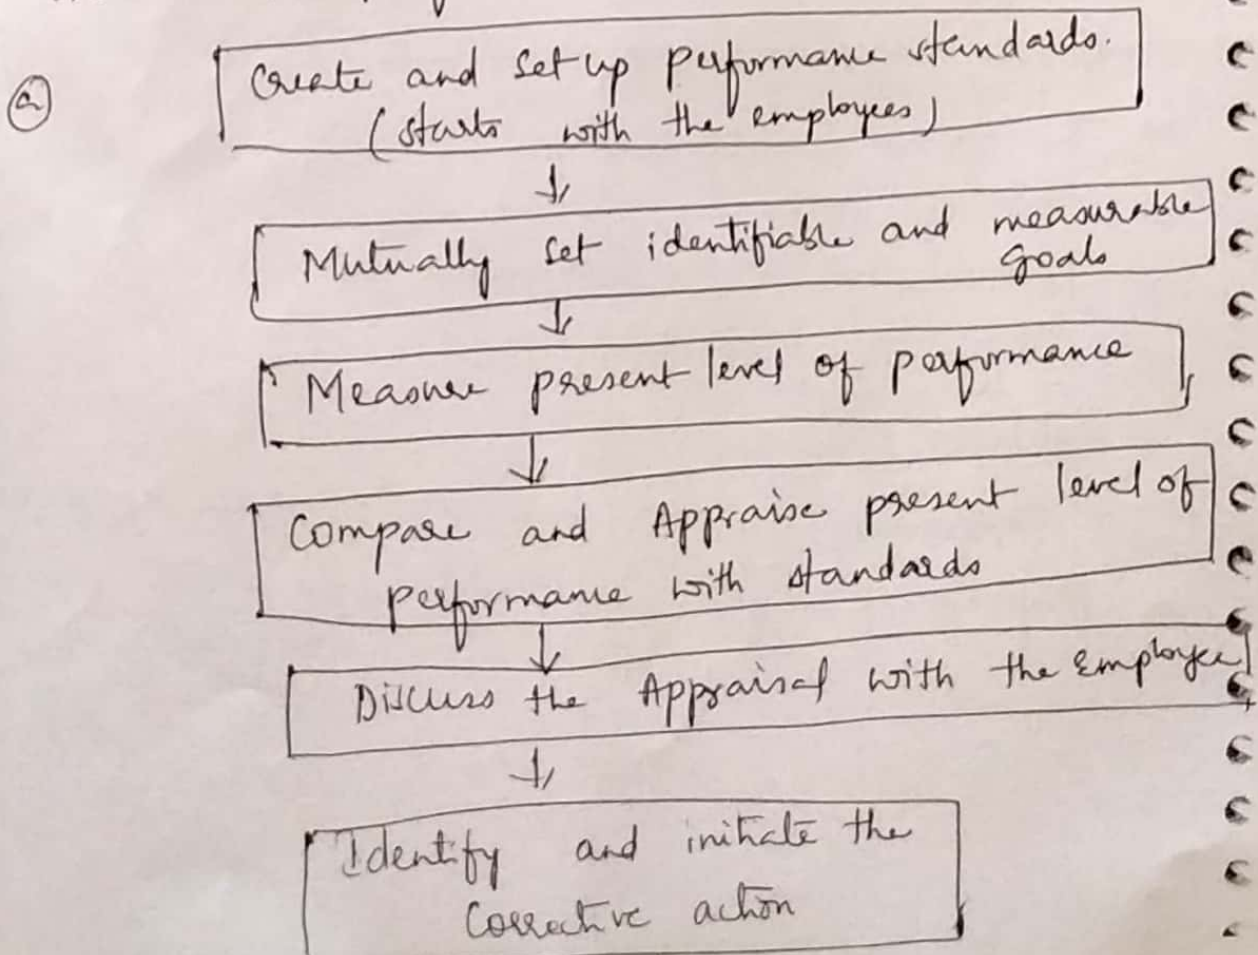 a
Create and set up performance standards.
(starts with the employees)
Mutually set identifiable and measurable
goals
Measure present level of performance
Compare and Appraise present level of
performance with standards
Discuss the Appraisal with the Employee
Identify and initiate the
Corrective action